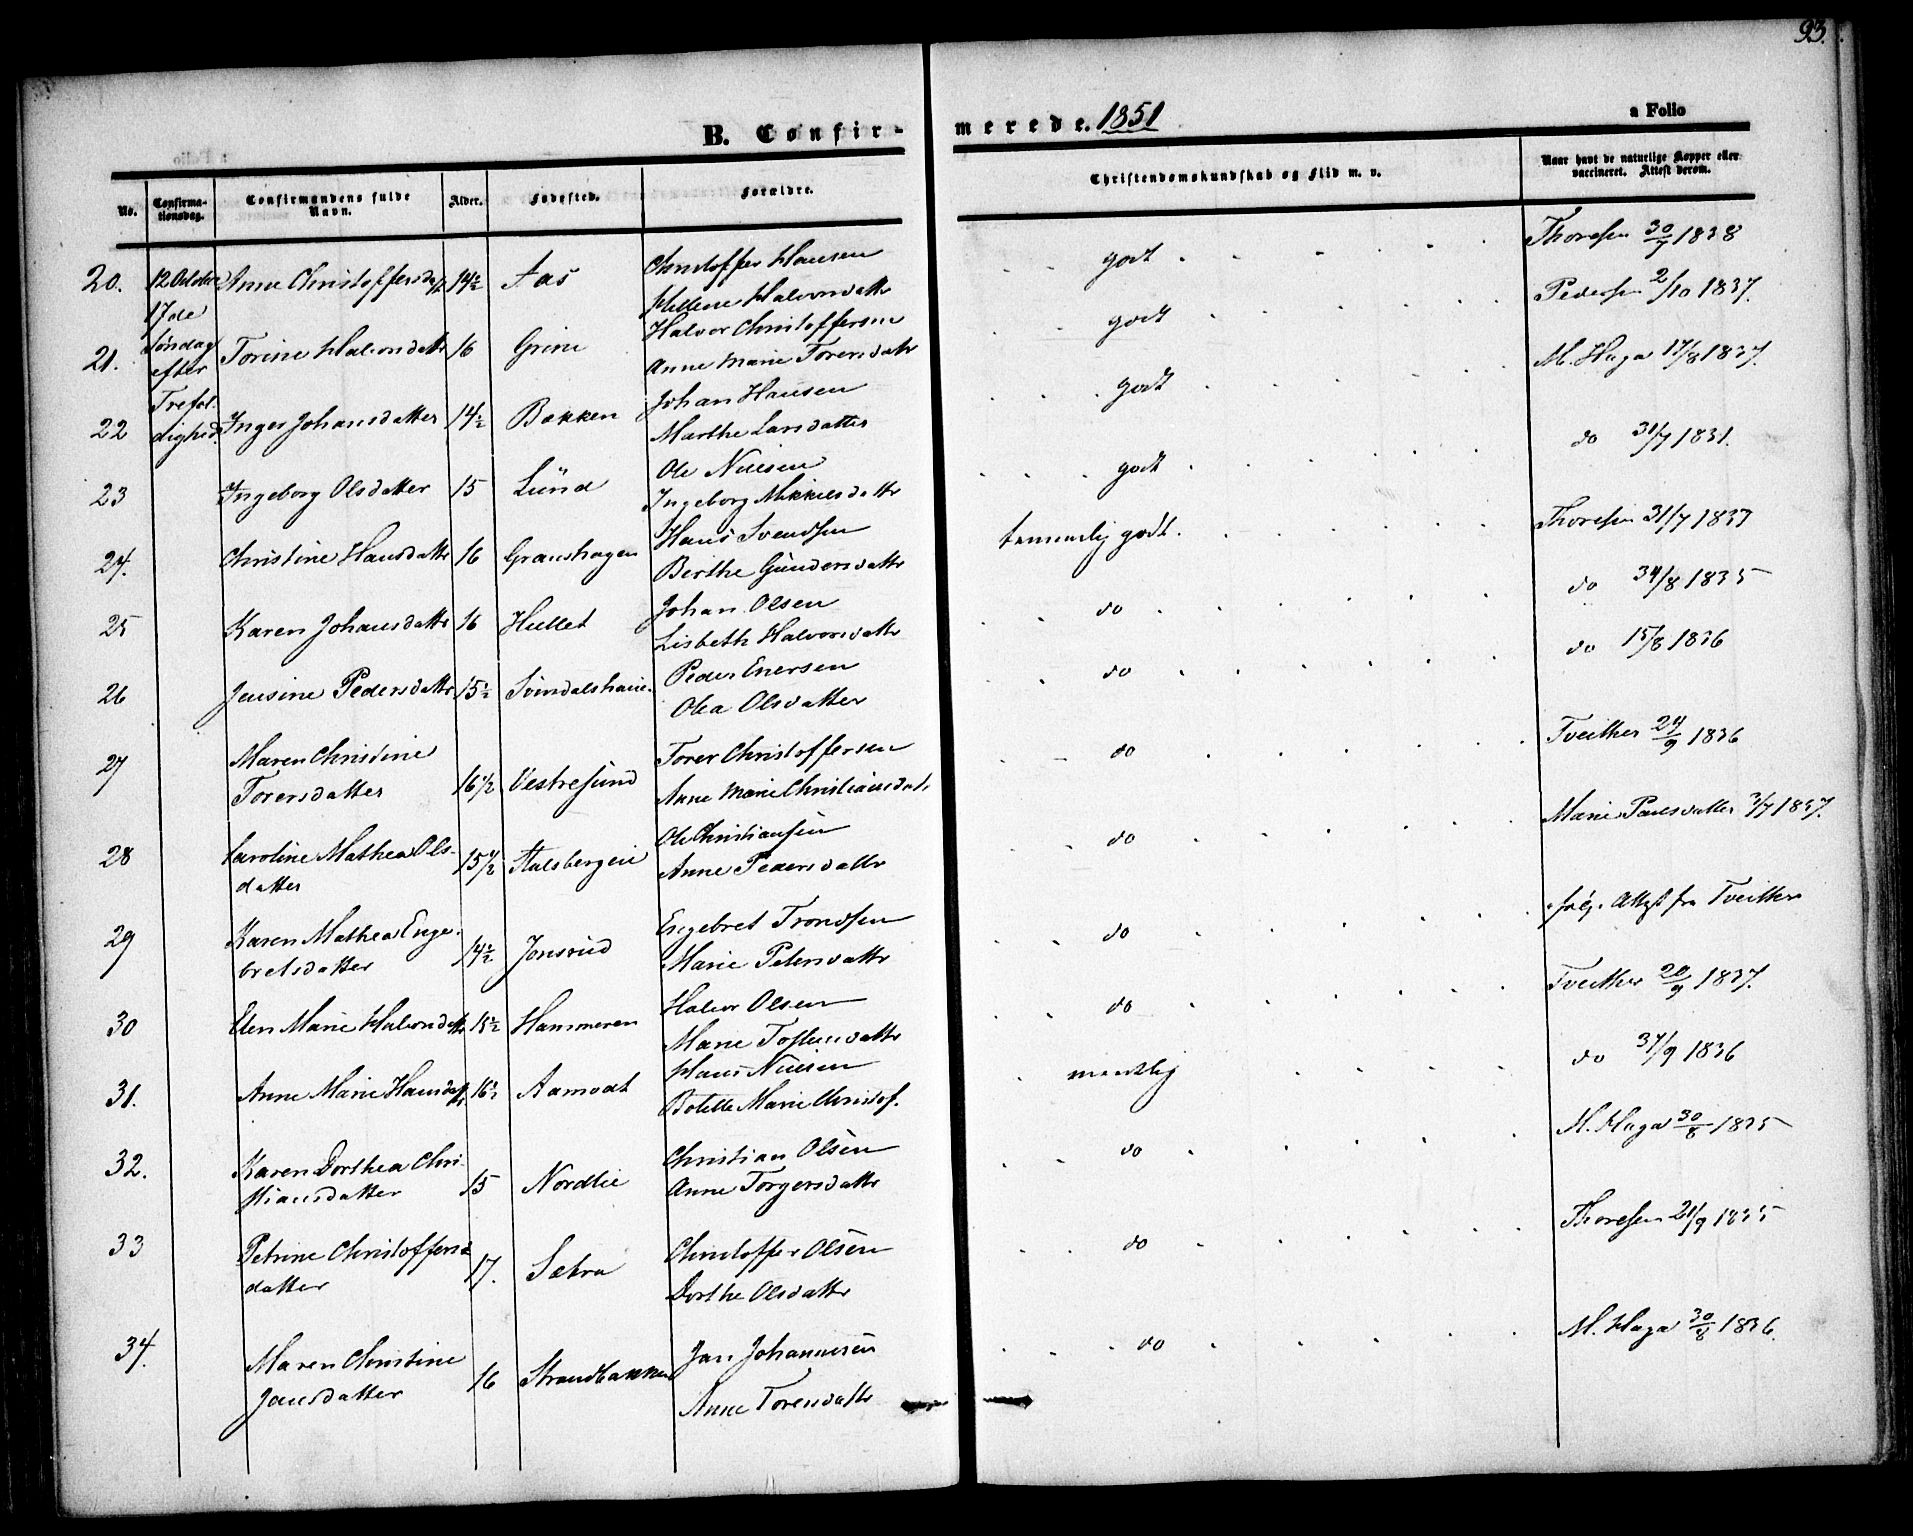 93.
B. Confirmerede. 1851
a Folio
No.
Confirma-
tionsdag.
Confirmandens fulde
Navn.
Alder.
Fødested.
Forældre.
Christendomskundskab og Flid m. v.
Naar havt de naturlige Kopper eller
vaccineret. Attest derom.
12 Octobr
17de
Søndag
efter
Trefol-
dighed.
20. Anne Christoffersdatt 14½ Aas
Christoffer Hansen
Hellene Halvorsdattr
godt
Thoresen 30/7 1838
21. Torine Halvorsdattr 16 Grini
Halvor Christoffersen
Anne Marie Toresdattr
godt
Pedersen 2/10 1837.
22 Inger Johansdatter 14½ Bakken
Johan Hansen
Marthe Larsdatter
godt
M. Haga 17/8 1837.
23 Ingeborg Olsdatter 15 Lund
Ole Nilsen
Ingeborg Mikkelsdattr
godt
do 31/7 1831.
24. Christine Hansdattr 16 Granshagen
Hans Svendsen
Berthe Gundersdattr
temmelig godt.
Thoresen 31/7 1837
25 Karen Johansdattr 16 Hullet
Johan Olsen
Lisbeth Halvorsdattr
do
do 34/8 1835
26 Jensine Pedersdattr 15½
Peder Enersen
Olea Olsdatter
do
do 15/8 1836
27 Maren Christine
Torersdatter 16 1/2 Vestresund
Torer Christoffersen
Anne Marie Christiansdat.
do
Tveither 24/9 1836
28 Caroline Mathea Ols-
datter 15 1/2 Stalsbergeie
Ole Christiansen
Anne Pedersdattr
do
Marie Paulsdatter 3/7 1837.
29 Karen Mathea Enge-
bretsdatter 14½ Jonsrud
Engebret Trondsen
Marie Petersdattr
do
følg. Attest fra Tveither
30 Elen Marie Halvorsdattr 15½ Hammeren
Halvor Olsen
Marie Tostensdattr
do
Tveither 20/9 1837.
31. Anne Marie Hansdatt 16½ Aamodt
Hans Nilsen
Bolette Marie Christof.
maadelig
do 37/9 1836
32. Karen Dorthea Chri-
stiansdatter 15 Nordlie
Christian Olsen
Anne Torgersdattr
do
M. Haga 30/8 1835
33 Petrine Christoffers-
datter 17. Sætra
Christoffer Olsen
Dorthe Olsdattr
do
Thoresen 21/9 1835
34. Maren Christine
Jansdatter 16 Strandbakken
Jan Johannesen
Anne Toresdattr
do
M. Haga 30/8 1836.